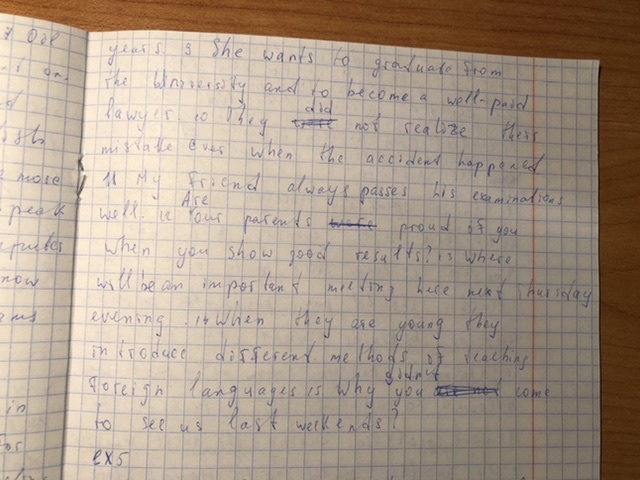 years 9 She wants to graduate from
the University and to become a well-paid
lawyer. 10 They did not realize their
mistake ever when the accident happened
11 My Friend always passes his examinations
well. 12 Are your parents proud of you
when you show good results? 13 where
will be an important meeting here next
evening. 14 When they are young they
introduce different methods of teaching
Foreign languages 15 Why you didn't come
to see us last weekends?
ex5
more
peak
now
ams
in
for